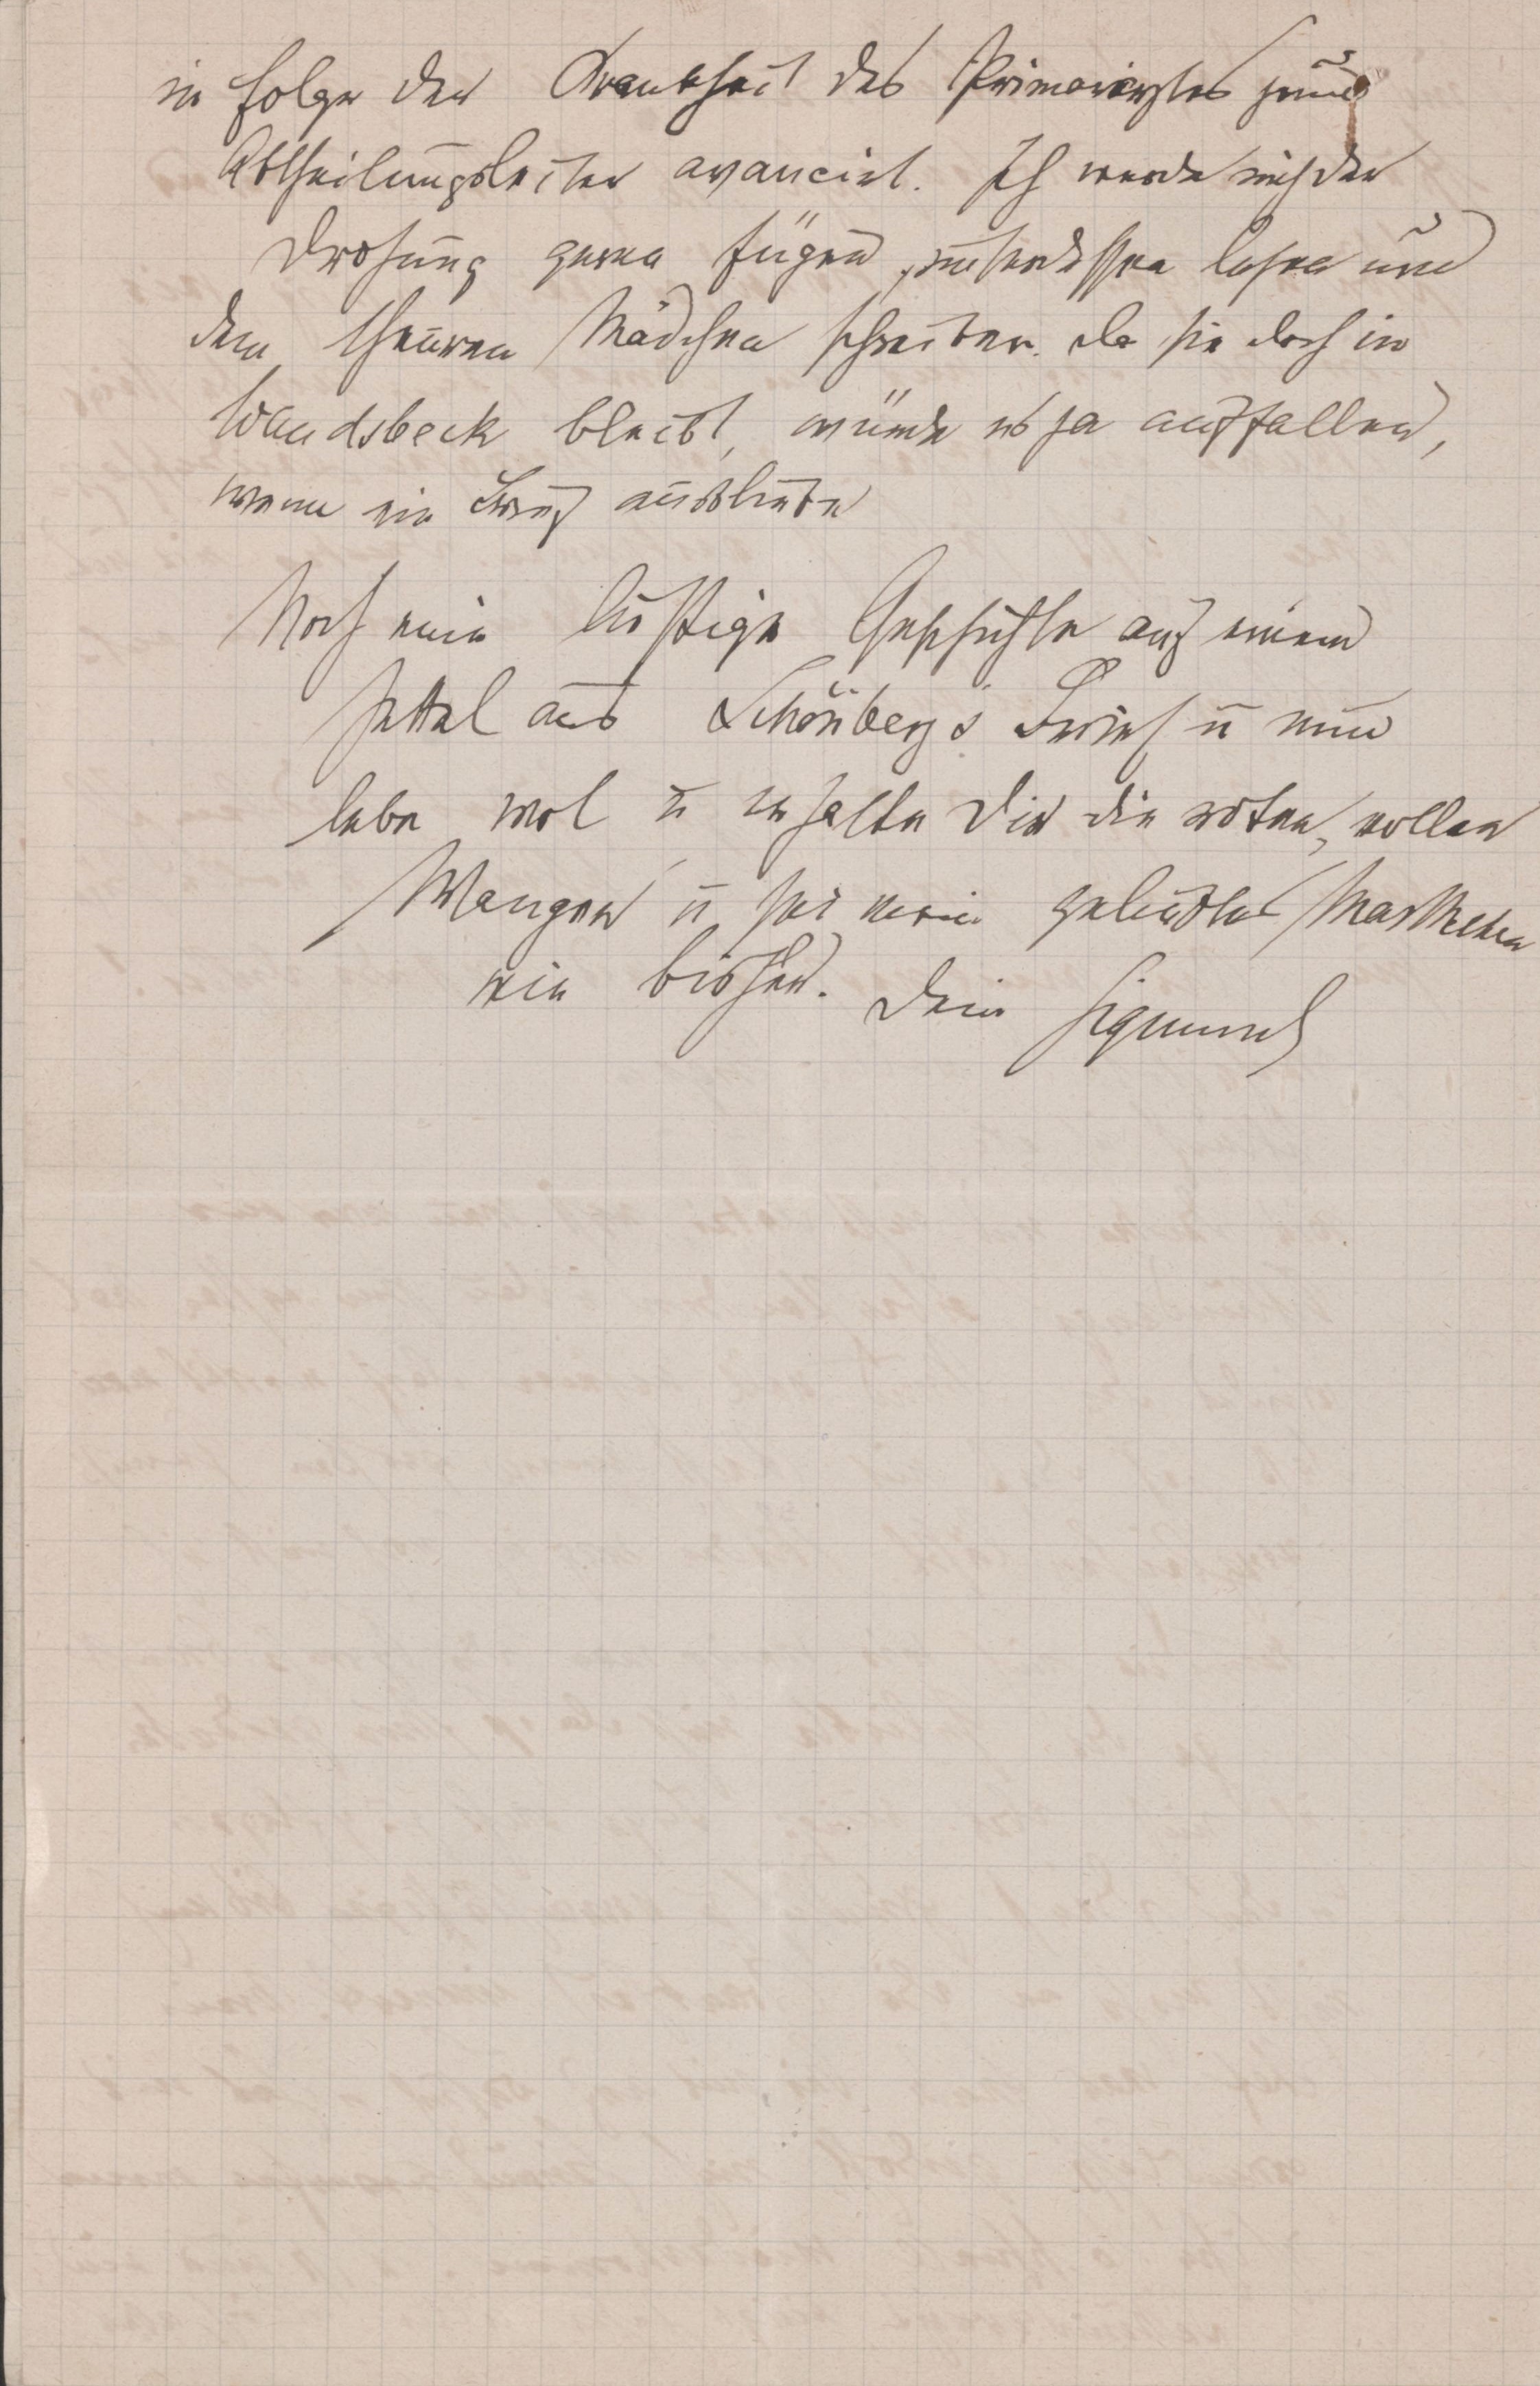 in Folge der Krankheit des Primararztes zum
Abtheilungsleiter avancirt. Ich werde mich der
Drohung gerne fügen, unterdessen lesen und
dem theuren Mädchen schreiben. Da sie doch in
Wandsbeck bleibt, würde es ja auffallen,
wenn ein Brief ausbliebe
Noch eine lustige Geschichte auf einem
Zettel aus Schönberg's Brief u nun
lebe wol u erhalte Dir die roten, vollen
Wangen u sei mein geliebtes Marthchen
wie bisher. Dein Sigmund